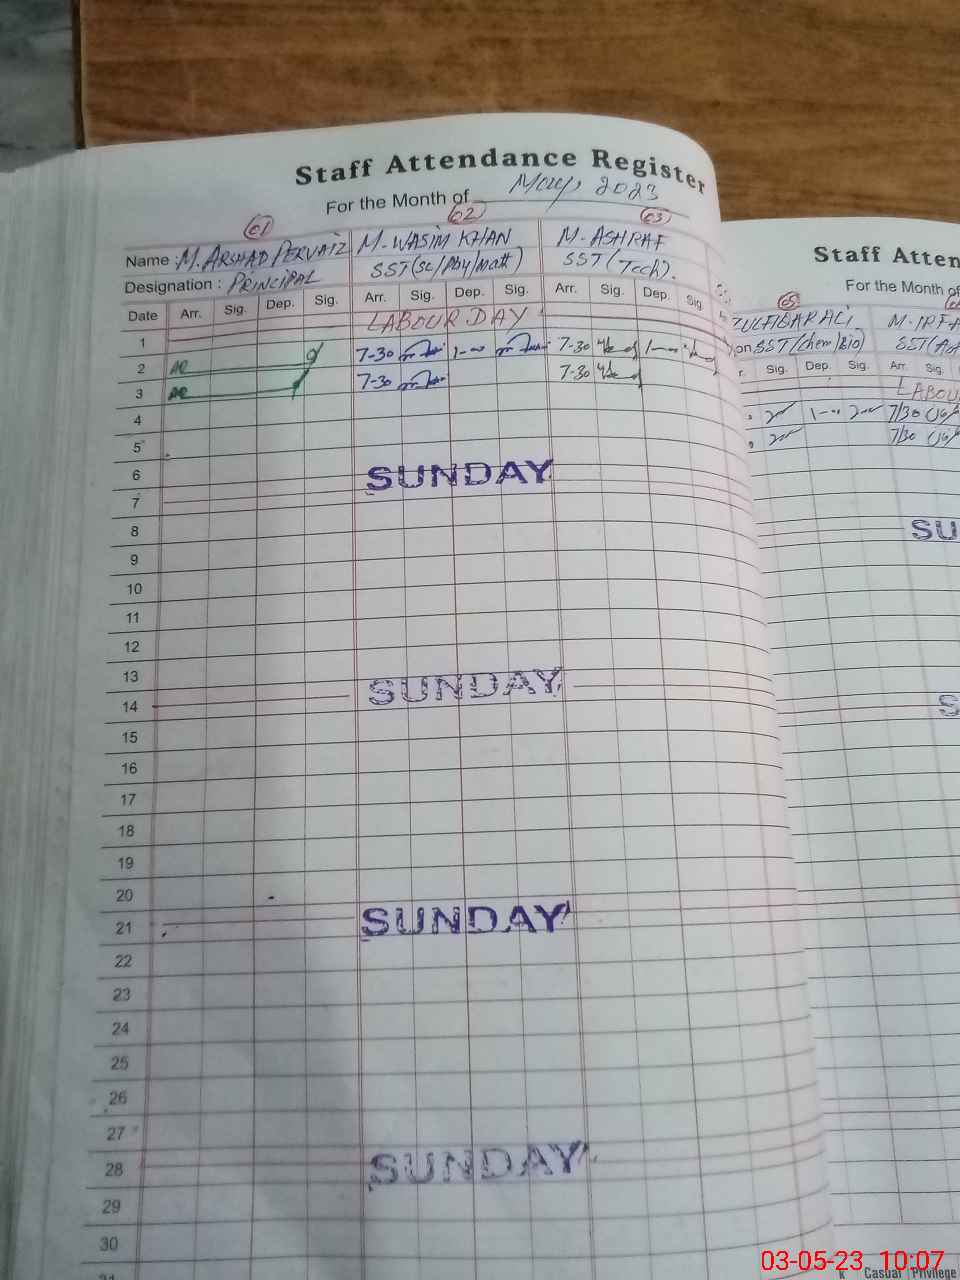 Staff Attendance Register
For the Month of May, 2023
01 02 03
Name : M. ARSHAD PERVAIZ M. WASIM KHAN M. ASHRAF
Designation : PRINCIPAL SST(Sc/Phy/Math) SST (Tech).
Date Arr. Sig. Dep. Sig. Arr. Sig. Dep. Sig. Arr. Sig. Dep. Sig.
1 LABOUR DAY
2 7-30 1-00 7-30 1-00
3 7-30 7-30
4
5
6
SUNDAY
7
8
9
10
11
12
13
SUNDAY
14
15
16
17
18
19
20
SUNDAY
21
22
23
24
25
26
27
SUNDAY
28
29
30
31
Staff Atten
For the Month of
05
ZULFIQAR ALI M. IRFA
on SST (Chem/Bio)
r. Sig. Dep. Sig. Arr. Sig.
LABOU
1-00 7/30
7/30
SU
S
Casual Privilege
03-05-23 10:07